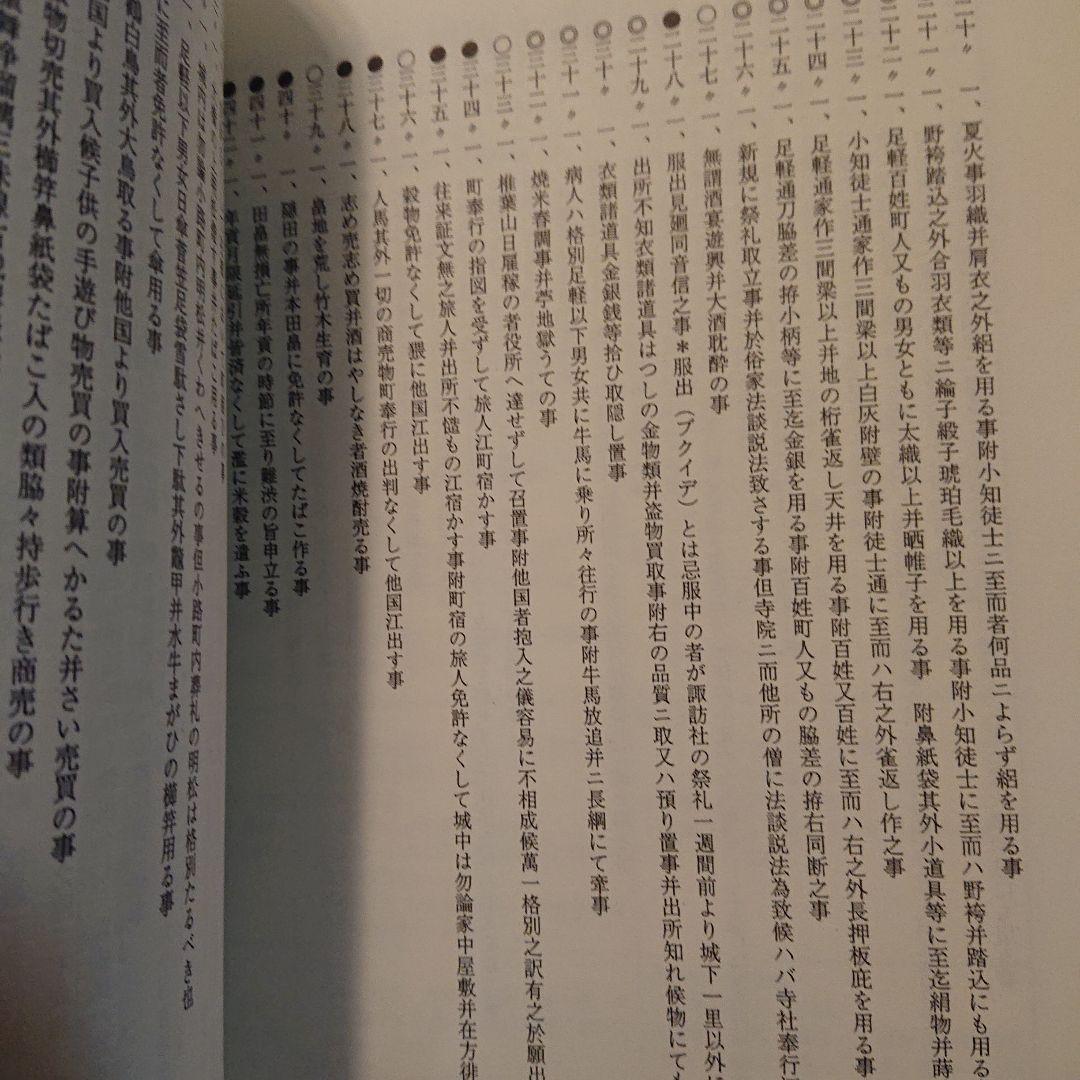 二十〃 一、夏火事羽織并肩衣之外絽を用る事附小知徒士ニ至而者何品ニよらず絽を用る事
二十一〃 一、野袴踏込之外合羽衣類等ニ綸子緞子琥珀毛織以上を用る事附小知徒士に至而ハ野袴并踏込にも用る
二十二〃 一、足軽百姓町人又もの男女ともに太織以上并晒帷子を用る事 附鼻紙袋其外小道具等に至迄絹物并蒔
〇二十三〃 一、小知徒士通家作三間梁以上白灰附壁の事附徒士通に至而ハ右之外雀返し作之事
◎二十四〃 一、足軽通家作三間梁以上并地の桁雀返し天井を用る事附百姓又百姓に至而ハ右之外長押板庇を用る事
◎二十五〃 一、足軽通刀脇差の拵小柄等に至迄金銀を用る事附百姓町人又もの脇差の拵右同断之事
◎二十六〃 一、新規に祭礼取立事并於俗家法談説法致さする事但寺院ニ而他所の僧に法談説法為致候ハバ寺社奉行
〇二十七〃 一、無謂酒宴遊興并大酒耽酔の事
●二十八〃 一、服出見廻同音信之事＊服出（ブクイデ）とは忌服中の者が諏訪社の祭礼一週間前より城下一里以外に
◎二十九〃 一、出所不知衣類諸道具はつしの金物類并盗物買取事附右の品質ニ取又ハ預り置事并出所知れ候物にても
◎三十〃 一、衣類諸道具金銀銭等拾ひ取隠し置事
◎三十一〃 一、病人ハ格別足軽以下男女共に牛馬に乗り所々往行の事附牛馬放追并ニ長綱にて牽事
◎三十二〃 一、焼米舂調事并苧地獄うての事
〇三十三〃 一、椎葉山日雇稼の者役所へ達せずして召置事附他国者抱入之儀容易に不相成候萬一格別之訳有之於願出
●三十四〃 一、町奉行の指図を受ずして旅人江町宿かす事
●三十五〃 一、往来証文無之旅人并出所不慥もの江宿かす事附町宿の旅人免許なくして城中は勿論家中屋敷并在方徘
〇三十六〃 一、穀物免許なくして猥に他国江出す事
●三十七〃 一、人馬其外一切の商売物町奉行の出判なくして他国江出す事
●三十八〃 一、志め売志め買并酒はやしなき者酒焼酎売る事
〇三十九〃 一、畠地を荒し竹木生育の事
●四十〃 一、隠田の事并本田畠に免許なくしてたばこ作る事
●四十一〃 一、田畠無損亡所年貢の時節に至り難渋の旨申立る事
●四十二〃 一、年貢月限延引并皆済なくして濫に米穀を遣ふ事
足軽以下男女日傘着足袋雪駄さし下駄其外鼈甲并水牛まがひの櫛笄用る事
に至而者免許なくして傘用る事
鶴白鳥其外大鳥取る事附他国より買入売買の事
国より買入候子供の手遊び物売買の事附算へかるた并さい売買の事
物切売其外櫛笄鼻紙袋たばこ入の類脇々持歩行き商売の事